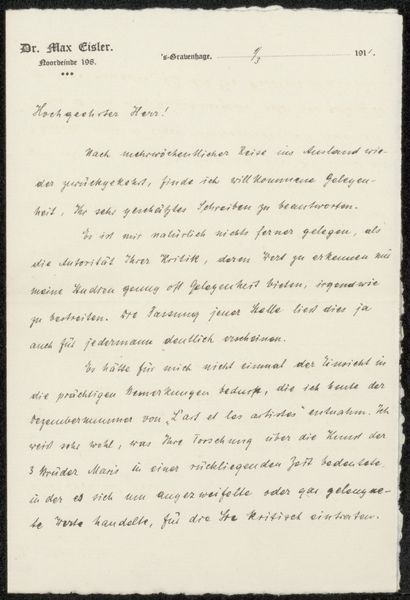 Dr. Max Eisler.
Noordeinde 196.
's-Gravenhage, 9/3 1911.
Hochgeehrter Herr!
Nach mehrwöchentlicher Reise ins Ausland wie-
der zurückgekehrt, finde ich willkommene Gelegen-
heit, Ihr sehr geschätztes Schreiben zu beantworten.
Es ist mir natürlich nichts ferner gelegen, als
die Autorität Ihrer Kritik, deren Wert zu erkennen mir
meine Studien genug oft Gelegenheit bieten, irgendwie
zu bestreiten. Die Fassung jener Stelle liess dies ja
auch für jedermann deutlich erscheinen.
Es hätte für mich nicht einmal der Einsicht in
die prächtigen Bemerkungen bedurft, die ich heute der
Dezembernummer von „L'art et les artistes" entnahm. Ich
weiß sehr wohl, was Ihre Forschung über die Kunst der
3 Brüder Maris in einer rückliegenden Zeit bedeutete
in der es sich um angezweifelte oder gar geleugne-
te Werte handelte, für die Sie kritisch eintraten.